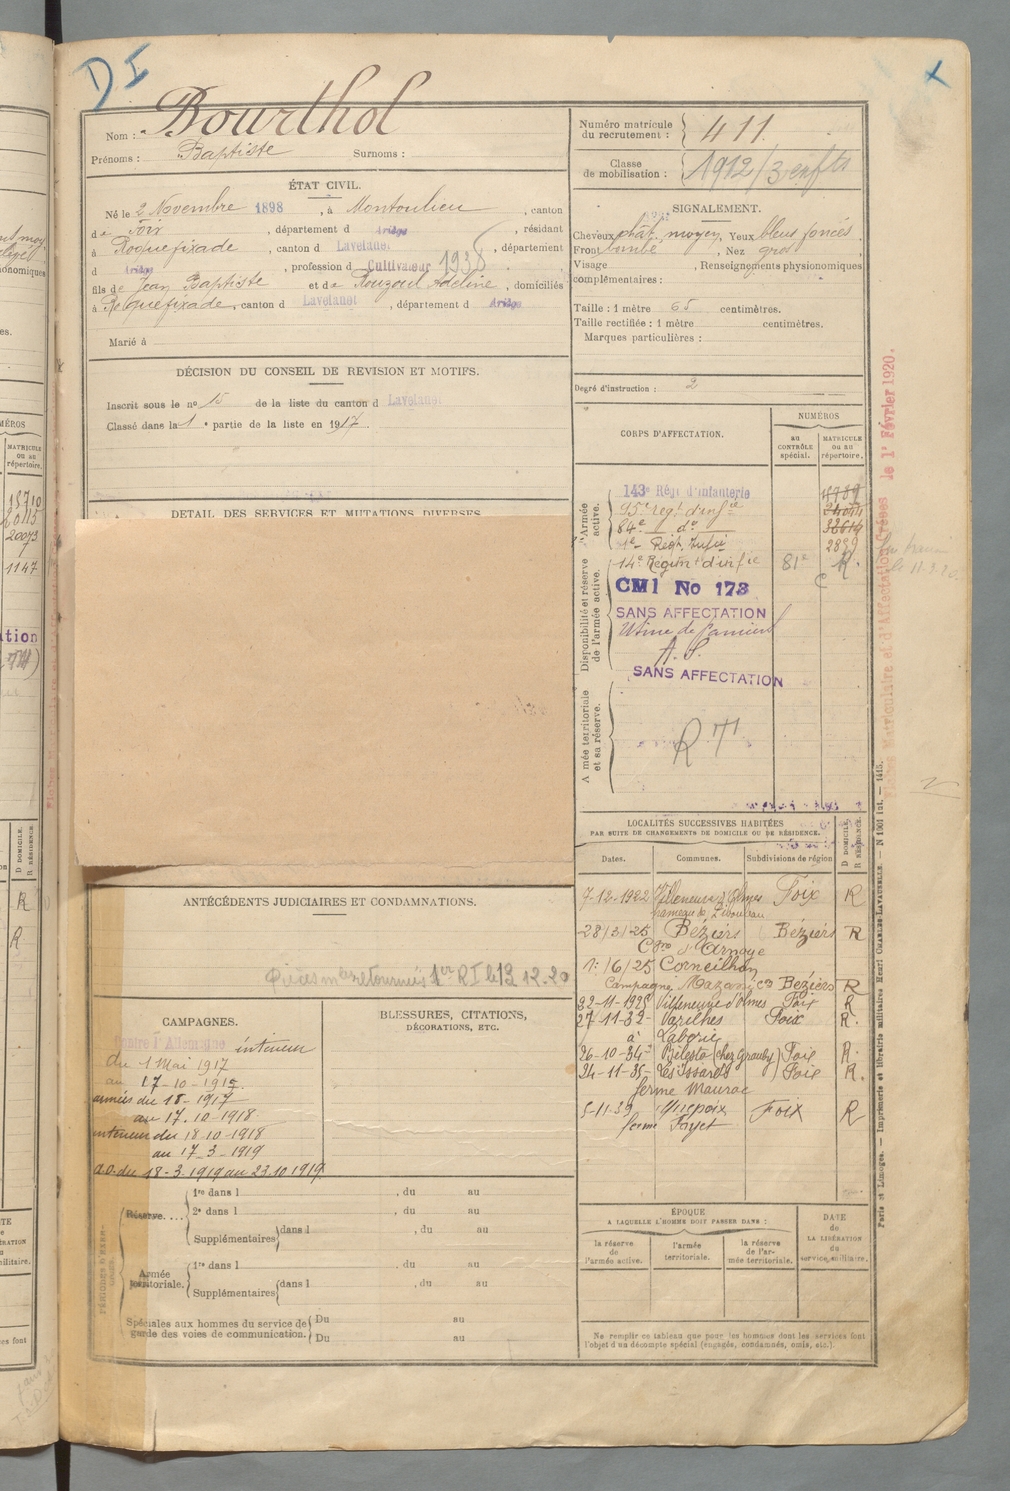 D I
Nom : Bourthol
Prénoms : Baptiste Surnoms :
ÉTAT CIVIL.
Né le 2 Novembre 1898, à Montoulieu, canton
de Foix, département d Ariège, résidant
à Roquefixade, canton d Lavelanet, département
d Ariège, profession d Cultivateur 1938
fils de Jean Baptiste et de Rouzoul Adeline, domiciliés
à Roquefixade, canton d Lavelanet, département d Ariège
Marié à
DÉCISION DU CONSEIL DE REVISION ET MOTIFS.
Inscrit sous le no 15 de la liste du canton d Lavelanet
Classé dans la 1e partie de la liste en 1917.
DETAIL DES SERVICES ET MUTATIONS DIVERSES
ANTÉCÉDENTS JUDICIAIRES ET CONDAMNATIONS.
Pièces mles retournées 1er R I le 13.12.20
CAMPAGNES.
Contre l'Allemagne intérieur
du 1 Mai 1917
au 17-10-1917
armées du 18-1917
au 17.10-1918
intérieur du 18.10-1918
au 17-3-1919
a.o. du 18-3.1919 au 23.10.1919
BLESSURES, CITATIONS,
DÉCORATIONS, ETC.
PÉRIODES D'EXERCICES
Réserve....
1re dans l , du au
2e dans l , du au
Supplémentaires dans l , du au
Armée
territoriale.
1re dans l , du au
Supplémentaires dans l , du au
Spéciales aux hommes du service de
garde des voies de communication.
Du au
Du au
Numéro matricule
du recrutement : 411
Classe
de mobilisation : 1912/3 enfts
SIGNALEMENT.
Cheveux chât. moyen, Yeux bleus foncés
Front bombé, Nez gros
Visage , Renseignements physionomiques
complémentaires :
Taille : 1 mètre 65 centimètres.
Taille rectifiée : 1 mètre centimètres.
Marques particulières :
Degré d'instruction : 2
CORPS D'AFFECTATION.
NUMÉROS
au CONTRÔLE spécial.
MATRICULE ou au répertoire.
Armée active.
143e Régt d'Infanterie
95e Régt d'infie
84e d°
1er Régt Infie 2839
Disponibilité et réserve de l'armée active.
14e Régiment d'infie 81e R.
C
CMI No 173
SANS AFFECTATION
Usine de Pamiers
A. S.
SANS AFFECTATION
Armée territoriale et sa réserve.
LOCALITÉS SUCCESSIVES HABITÉES
PAR SUITE DE CHANGEMENTS DE DOMICILE OU DE RÉSIDENCE.
D DOMICILE. R RÉSIDENCE.
Dates. Communes. Subdivisions de région
7-12-1922 Villeneuve d'Olmes Foix R
28/3/25 Béziers Béziers R
1: /6/25 Corneilhan
Campagne Mazani cs Béziers R
22-11-1925 Villeneuve d'Olmes Foix R
27-11-32- Varilhes Foix R.
à Laborie
26-10-34- Bélesta (chez Grauby) Foix R.
24-11-35- Les Issards Foix R.
ferme Maurac
5-11-39 Mirepoix Foix R
ferme Fayet
ÉPOQUE
A LAQUELLE L'HOMME DOIT PASSER DANS :
la réserve de l'armée active.
l'armée territoriale.
la réserve de l'armée territoriale.
DATE
de
LA LIBÉRATION
du
service militaire.
Ne remplir ce tableau que pour les hommes dont les services font
l'objet d'un décompte spécial (engagés, condamnés, omis, etc.).
Paris et Limoges. — Imprimerie et librairie militaires Henri CHARLES-LAVAUZELLE. — N° 1901 int. — 1415.
Fiches Matriculaire et d'Affectation Créées le 1er Février 1920.
MATRICULE
ou au
répertoire.
15710
20115
20073
1147
D DOMICILE.
R RÉSIDENCE.
R
R